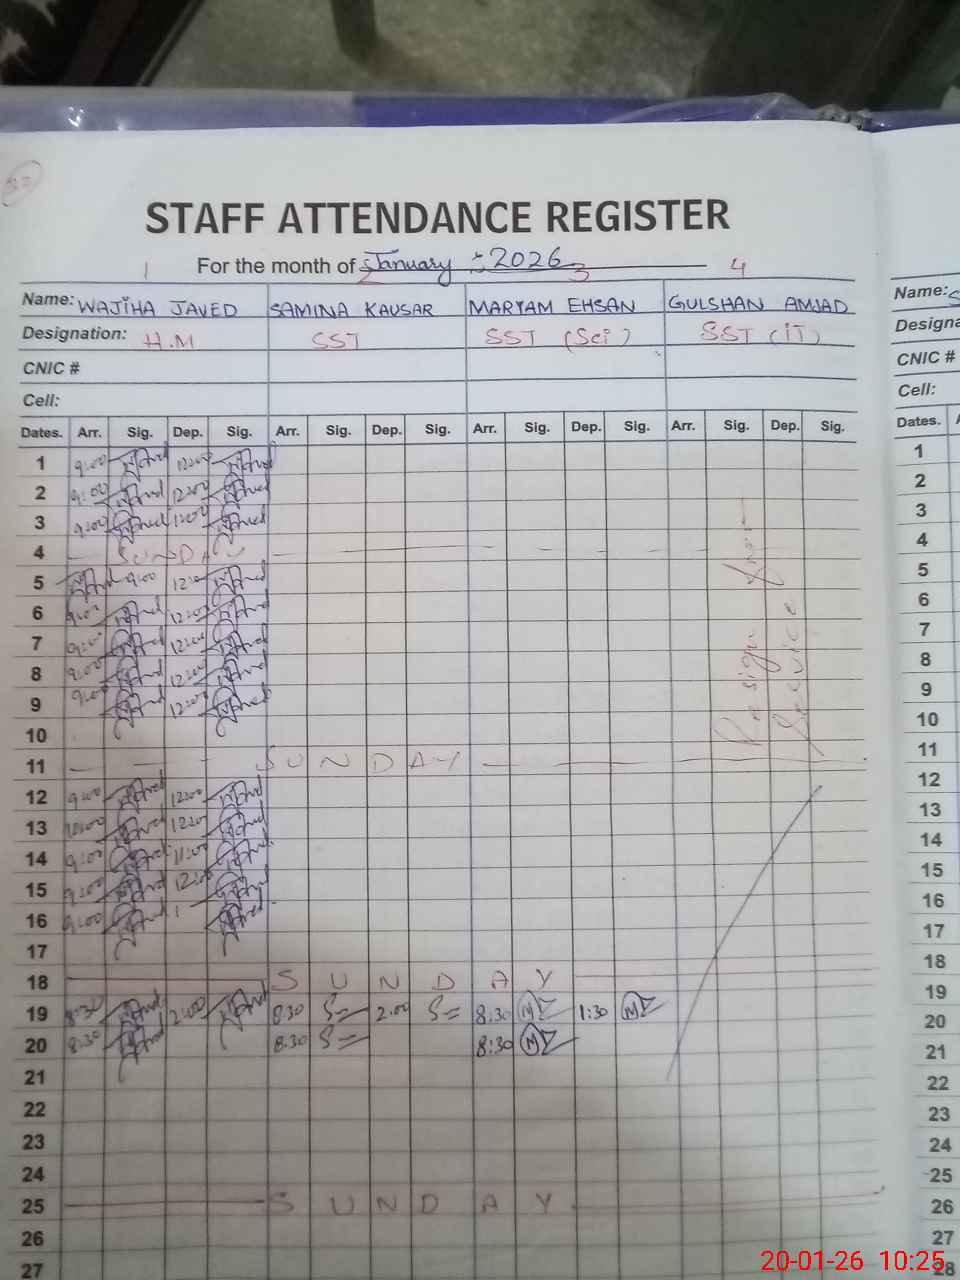 STAFF ATTENDANCE REGISTER
For the month of January :- 2026
1 2 3 4
Name: WAJIHA JAVED SAMINA KAUSAR MARYAM EHSAN GULSHAN AMJAD
Designation: H.M SST SST (Sci) SST (iT)
CNIC #
Cell:
Dates. Arr. Sig. Dep. Sig. Arr. Sig. Dep. Sig. Arr. Sig. Dep. Sig. Arr. Sig. Dep. Sig.
1 9:00 12:00
2 9:00 12:00
3 9:00 12:00
4 SUNDAY
5 9:00
6 9:00 12:00
7 9:00 12:00
8 9:00 12:00
9 9:00 12:00
10
11 SUNDAY
12 9:00 12:00
13 10:00 12:00
14 9:00 11:00
15 9:00 12:00
16 9:00
17
18 SUNDAY
19 8:30 2:00 8:30 2:00 8:30 1:30
20 8:30 8:30 8:30
21
22
23
24
25 SUNDAY
26
27
Resign from
Service
Name:
Designa
CNIC #
Cell:
Dates.
1
2
3
4
5
6
7
8
9
10
11
12
13
14
15
16
17
18
19
20
21
22
23
24
25
26
27
28
20-01-26 10:25